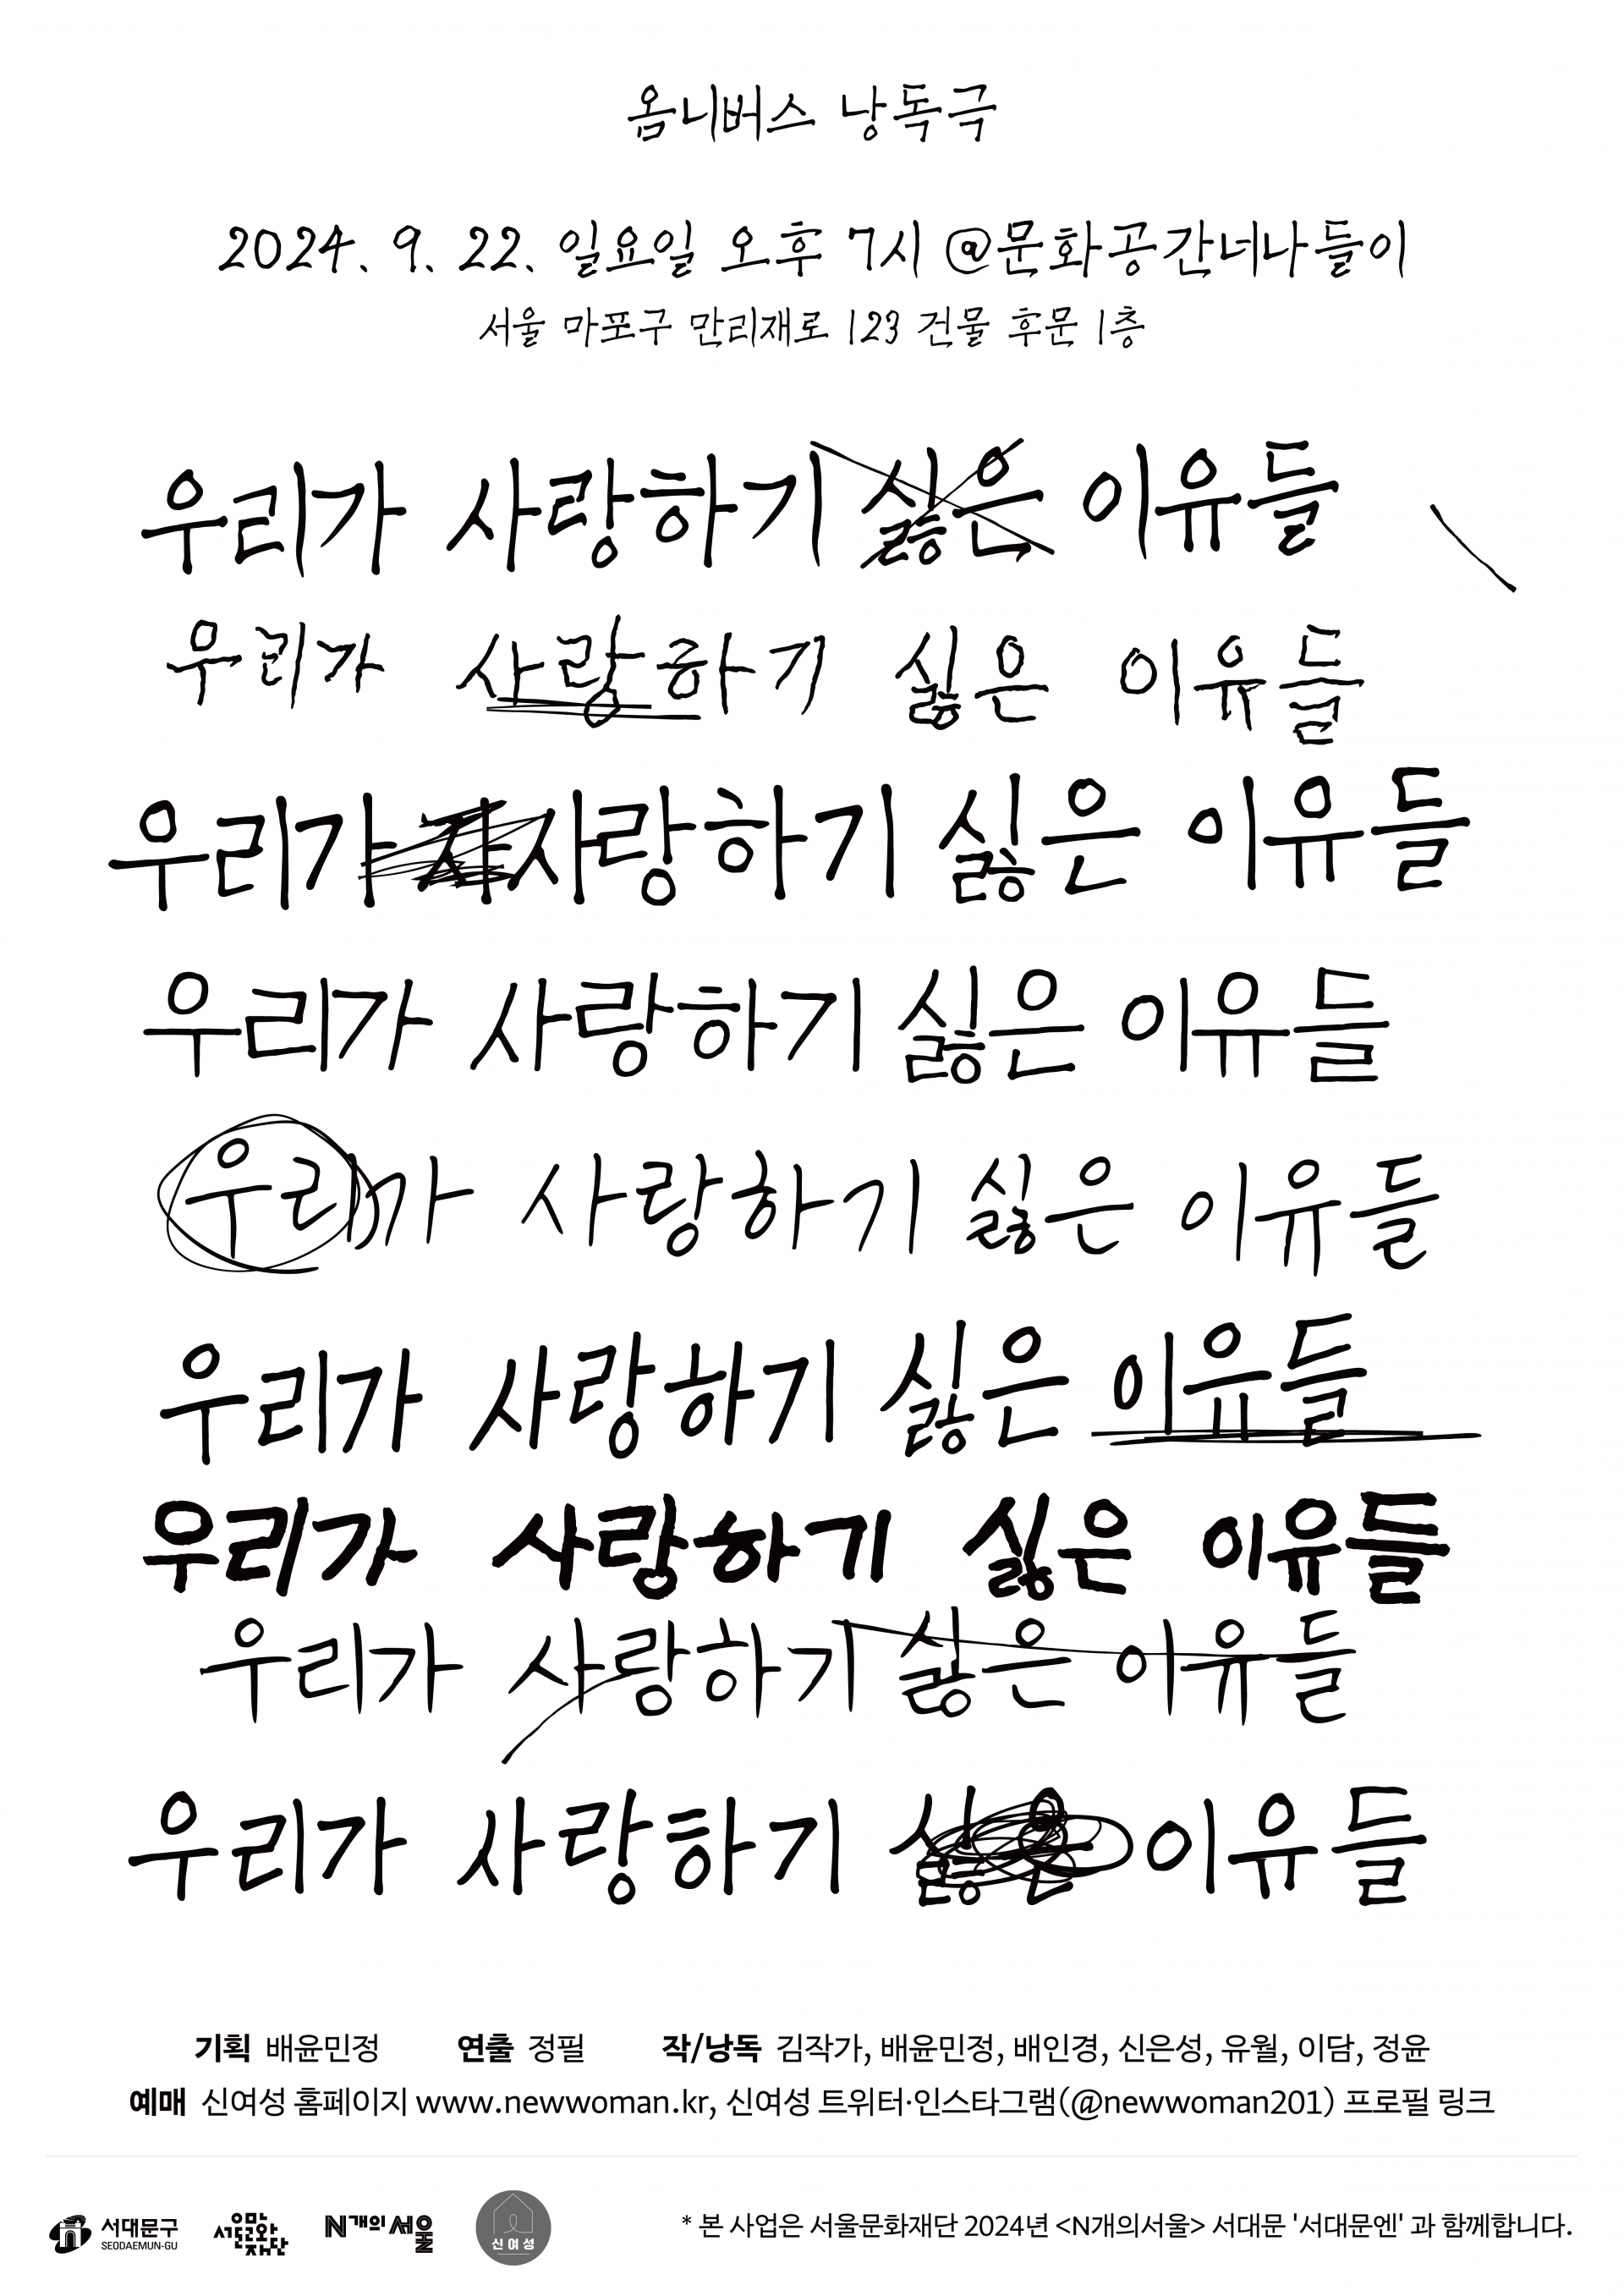 옴니버스 낭독극
2024. 9. 22. 일요일 오후 7시 @문화공간네나들이
서울 마포구 만리재로 123 건물 후문 1층
우리가 사랑하기 싫은 이유들
우리가 사랑하기 싫은 이유들
우리가 사랑하기 싫은 이유들
우리가 사랑하기 싫은 이유들
우리가 사랑하기 싫은 이유들
우리가 사랑하기 싫은 이유들
우리가 사랑하기 싫은 이유들
우리가 사랑하기 싫은 이유들
우리가 사랑하기 싫은 이유들
기획 배윤민정 연출 정필 작/낭독 김작가, 배윤민정, 배인경, 신은성, 유월, 이담, 정윤
예매 신여성 홈페이지 www.newwoman.kr, 신여성 트위터·인스타그램(@newwoman201) 프로필 링크
서대문구
SEODAEMUN-GU
서울문화재단
N개의 서울
신여성
* 본 사업은 서울문화재단 2024년 <N개의서울> 서대문 '서대문엔' 과 함께합니다.